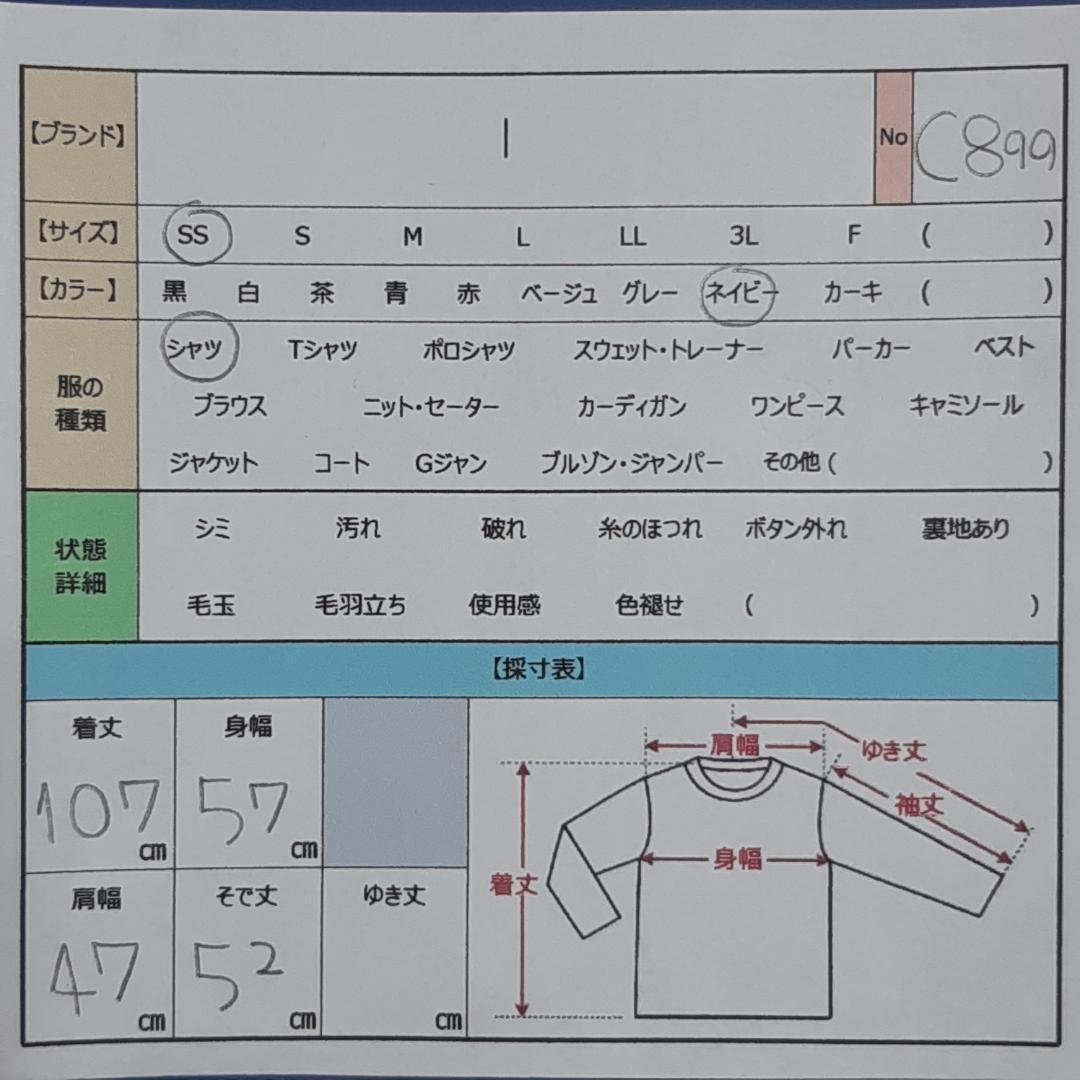 【ブランド】 | No C899
【サイズ】 SS S M L LL 3L F ( )
【カラー】 黒 白 茶 青 赤 ベージュ グレー ネイビー カーキ ( )
服の種類
シャツ Tシャツ ポロシャツ スウェット・トレーナー パーカー ベスト
ブラウス ニット・セーター カーディガン ワンピース キャミソール
ジャケット コート Gジャン ブルゾン・ジャンパー その他 ( )
状態詳細
シミ 汚れ 破れ 糸のほつれ ボタン外れ 裏地あり
毛玉 毛羽立ち 使用感 色褪せ ( )
【採寸表】
着丈 身幅
107 cm 57 cm
肩幅 そで丈 ゆき丈
47 cm 52 cm cm
肩幅
ゆき丈
袖丈
身幅
着丈